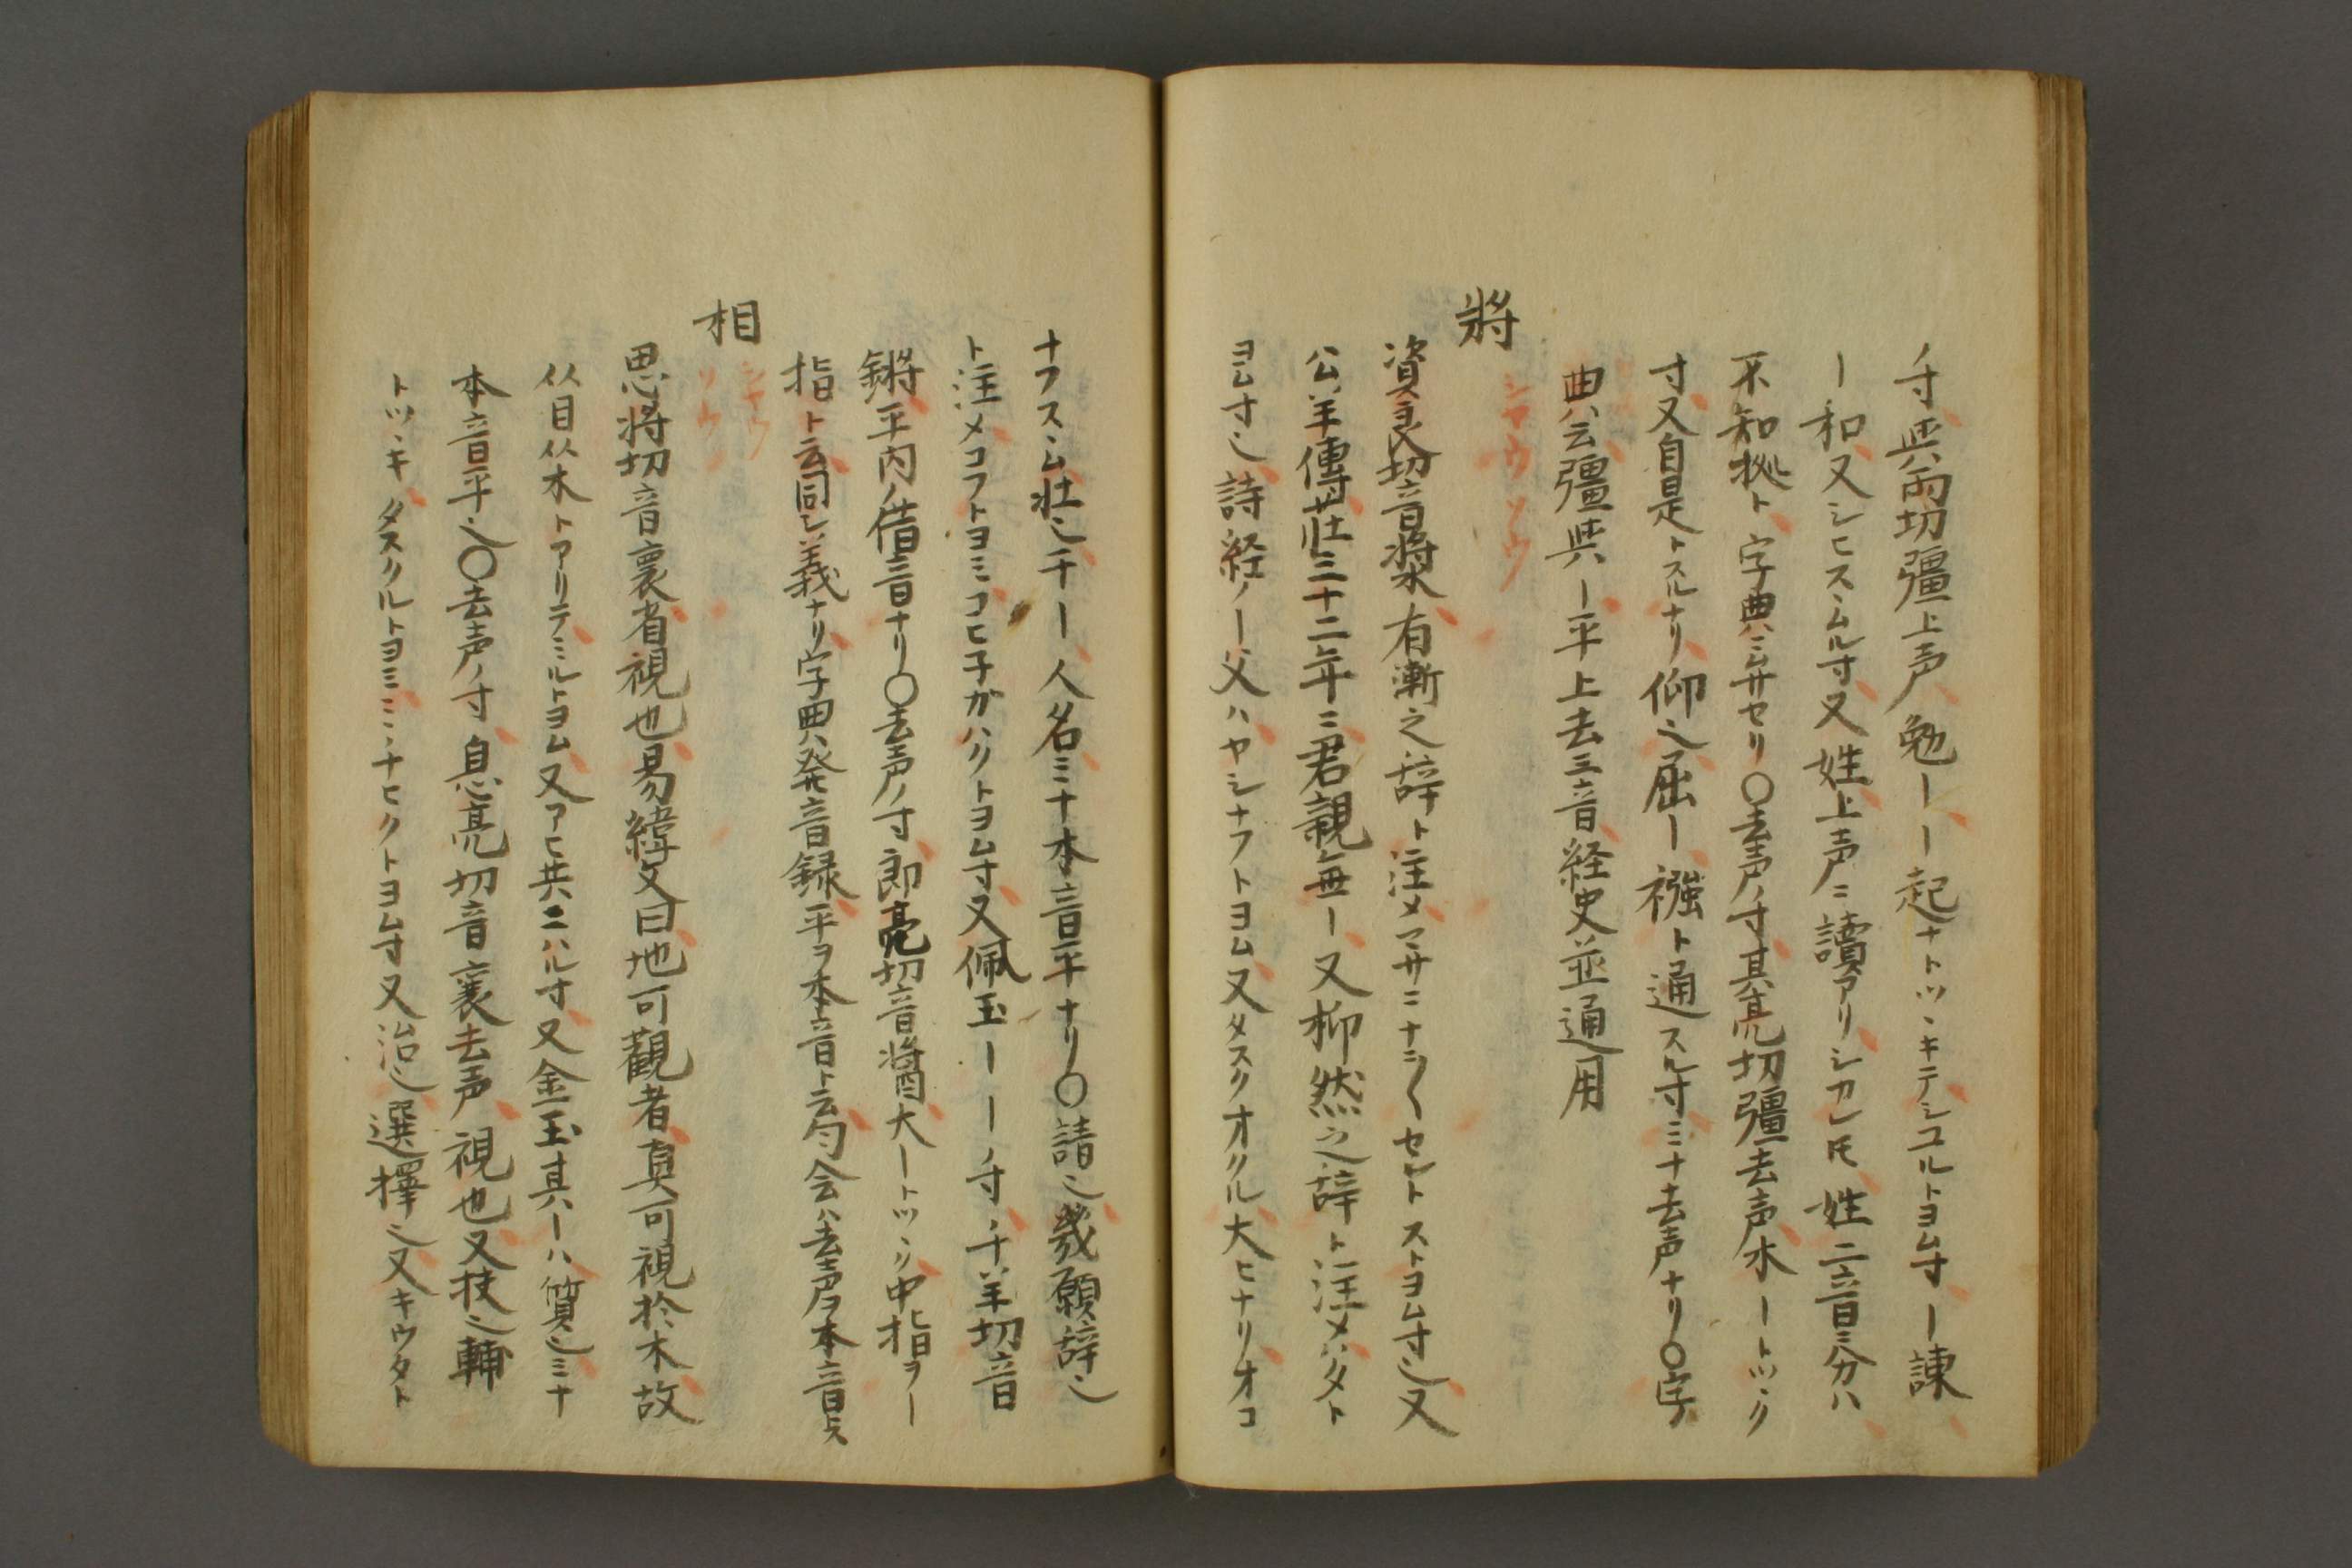 ノ寸其両切彊上声勉ーー起ナトツヽキテシユルトヨム寸ー諌
ー和又シヒスヽムル寸又姓上声ニ讀アリシカレ𪜈姓二音ニ分ハ
不知拠ト字典ハミ〆サセリ〇去声ノ寸其亮切彊去声木ートツヽク
寸又自是トスルナリ仰之屈ー襁ト通スル寸ミナ去声ナリ〇字
典ハ云彊其ー平上去三音経史並通用
將
シヤウソウ
資良切音漿有漸之辞ト注メマサニナニ〱セントストヨム寸也又
公羊傳荘三十二年ニ君親無ー又抑然之辞ト注メハタト
ヨム寸也詩経ノー父ハヤシナフトヨム又タスクオクル大ヒナリオコ
ナフスヽム壮也干ー人名ミナ本音平ナリ〇請也幾願辞也
ト注メコフトヨミコヒ子カハクトヨム寸又佩玉ーーノ寸ノ千羊切音
鏘平内ノ借音ナリ〇去声ノ寸即亮切音醤大ートツヽク中指ヲー
指ト云同シ義ナリ字典ハ発音録平ヲ本音ト云勻会ハ去声ヲ本音トス
相
シヤウ
ソウ
思将切音襄省視也易緯文曰地可觀者莫可視於木故
从目从木トアリテミルトヨム又アヒ共ニハル寸又金玉其ーハ質也ミナ
本音平也〇去声ノ寸息亮切音襄去声視也又扶也輔
トツヽキタスクルトヨミミチヒクトヨム寸又治也選擇也又キウタト